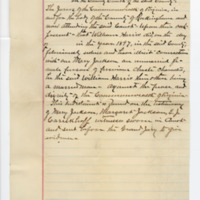 In the County Court of the said County.
The Jurors of the Commonwealth of Virginia, in
and for the body of the County of Rockingham and
now attending the said Court, upon their oath
present that William Harris on the day
in the year 1897, in the said County
feloniously did
with one Mary Jackson, an unmarried fe-
male person of previous chaste character,
he the said William Harris being then
a married man against the peace and
dignity of the Commonwealth of Virginia.
This indictment is found on the testimony
of Mary Jackson, Margaret Jackson, & J.
witnesses sworn in Court
and sent before the Grand Jury to give
evidence.